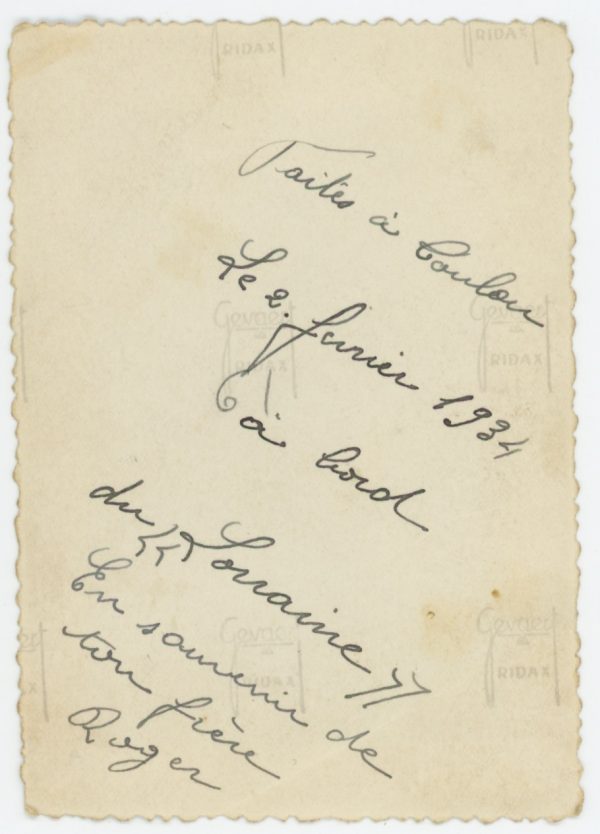 RIDAX
RIDAX
Faites à Toulon
Le 2. février 1934
à bord
du "Lorraine"
En souvenir de
ton frère
Roger
Gevaert
RIDAX
Gevaert
RIDAX
Gevaert
RIDAX
Gevaert
RIDAX